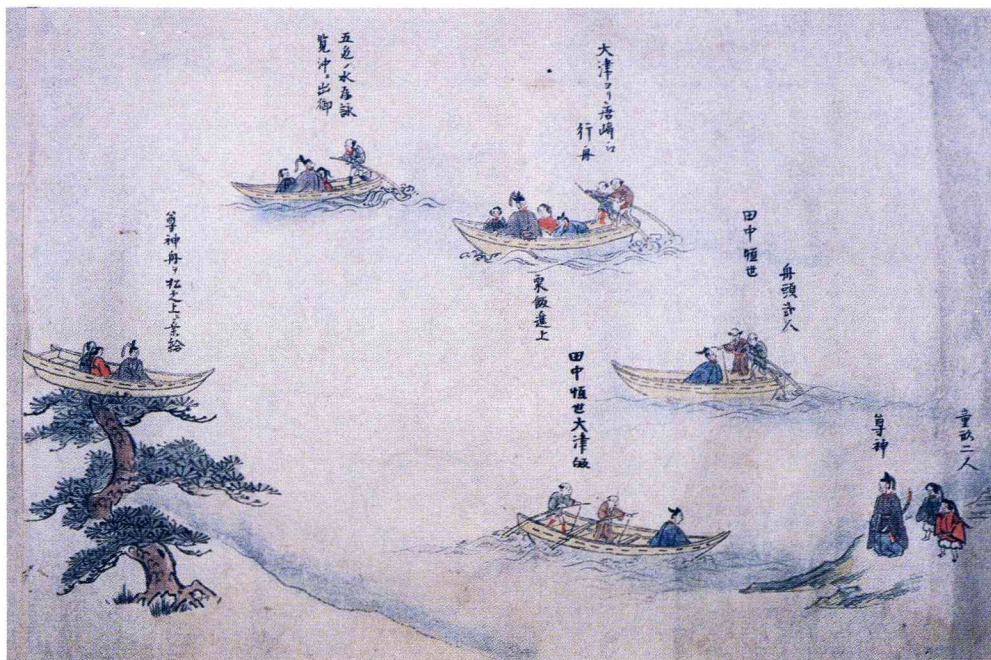 童形二人
尊神
舟頭弐人
田中恒世
大津ヨリ唐崎江
行舟
粟飯進上
田中恒世大津飯
五色ノ水
覧沖ニ出御
尊神舟ヲ松之上ニ乗給